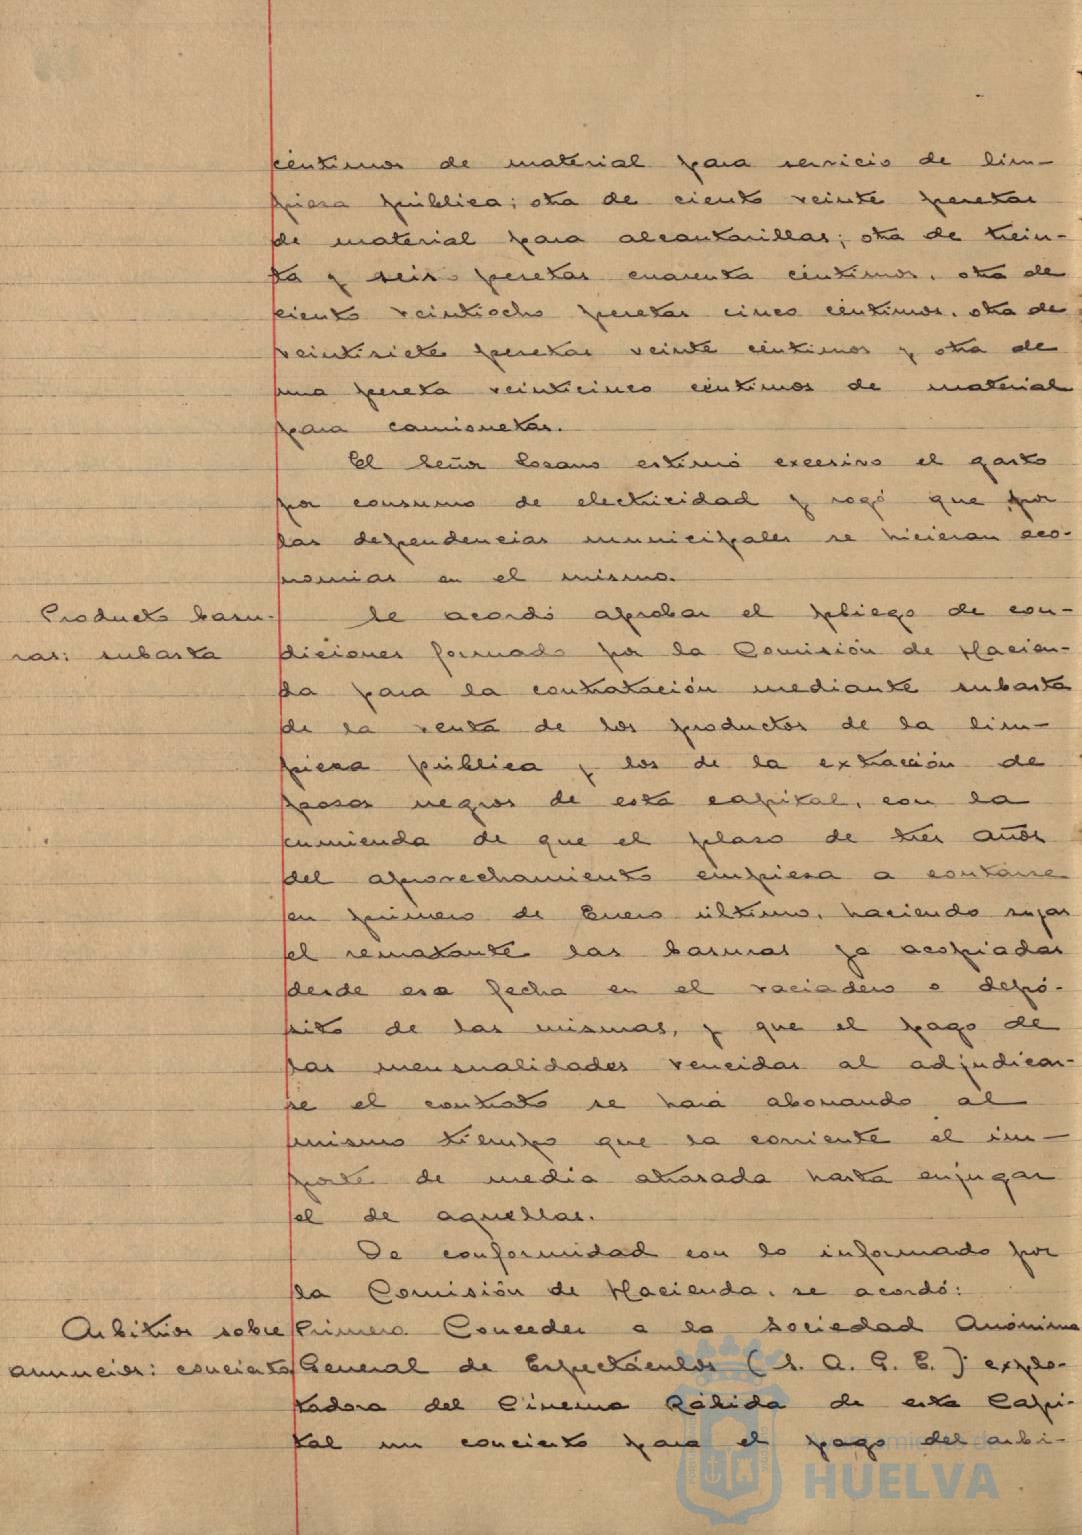 céntimos de material para servicio de lim-
pieza pública; otra de ciento veinte pesetas
de material para alcantarillas; otra de trein-
ta y seis pesetas cuarenta céntimos, otra de
ciento veintiocho pesetas cinco céntimos, otra de
veintisiete pesetas veinte céntimos y otra de
una peseta veinticinco céntimos de material
para camionetas.
El Señor Lozano estimó excesivo el gasto
por consumo de electricidad y rogó que por
las dependencias municipales se hicieran eco-
nomías en el mismo.
Producto basu-
ras: subasta
Se acordó aprobar el pliego de con-
diciones formado por la Comisión de Hacien-
da para la contratación mediante subasta
de la venta de los productos de la lim-
pieza pública y los de la extracción de
pozos negros de esta capital, con la
enmienda de que el plazo de tres años
del aprovechamiento empieza a contarse
en primero de Enero último, haciendo suyas
el rematante las basuras ya acopiadas
desde esa fecha en el vaciadero o depó-
sito de las mismas, y que el pago de
las mensualidades vencidas al adjudicar-
se el contrato se hará abonando al
mismo tiempo que la corriente el im-
porte de media atrasada hasta enjugar
el de aquellas.
De conformidad con lo informado por
la Comisión de Hacienda, se acordó:
Arbitrios sobre
anuncios: concierto
Primero. Conceder a la Sociedad Anónima
General de Espectáculos (S. A. G. E.) explo-
tadora del Cinema Rábida de esta Capi-
tal un concierto para el pago del arbi-
Ayuntamiento de
HUELVA